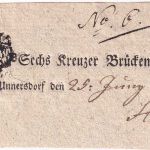 No. 6.
Sechs Kreuzer Brücken
Unnersdorf den 25. Juny